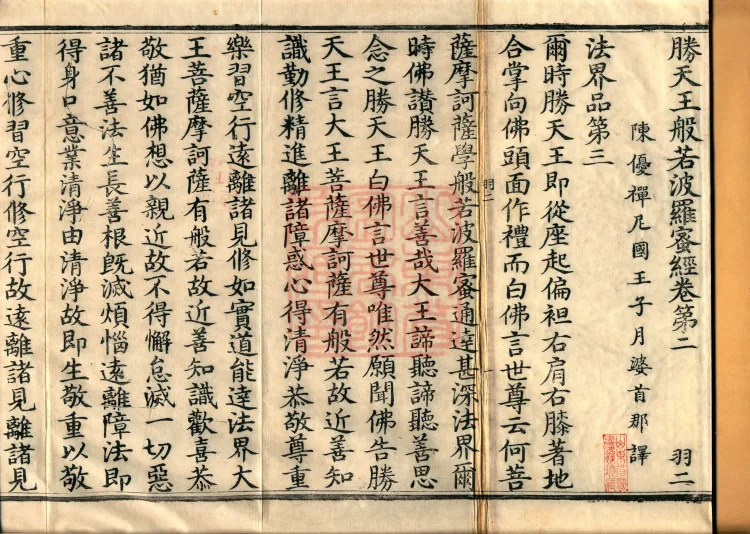 勝天王般若波羅蜜經卷第二 羽二
陳優禪尼國王子月婆首那譯
法界品第三
爾時勝天王即從座起偏袒右肩右膝著地
合掌向佛頭面作禮而白佛言世尊云何菩
羽二
薩摩訶薩學般若波羅蜜通達甚深法界爾
時佛讚勝天王言善哉大王諦聽諦聽善思
念之勝天王白佛言世尊唯然願聞佛告勝
天王言大王菩薩摩訶薩有般若故近善知
識勤修精進離諸障惑心得清淨恭敬尊重
樂習空行遠離諸見修如實道能達法界大
王菩薩摩訶薩有般若故近善知識歡喜恭
敬猶如佛想以親近故不得懈怠滅一切惡
諸不善法生長善根既滅煩惱遠離障法即
得身口意業清淨由清淨故即生敬重以敬
重心修習空行修空行故遠離諸見離諸見